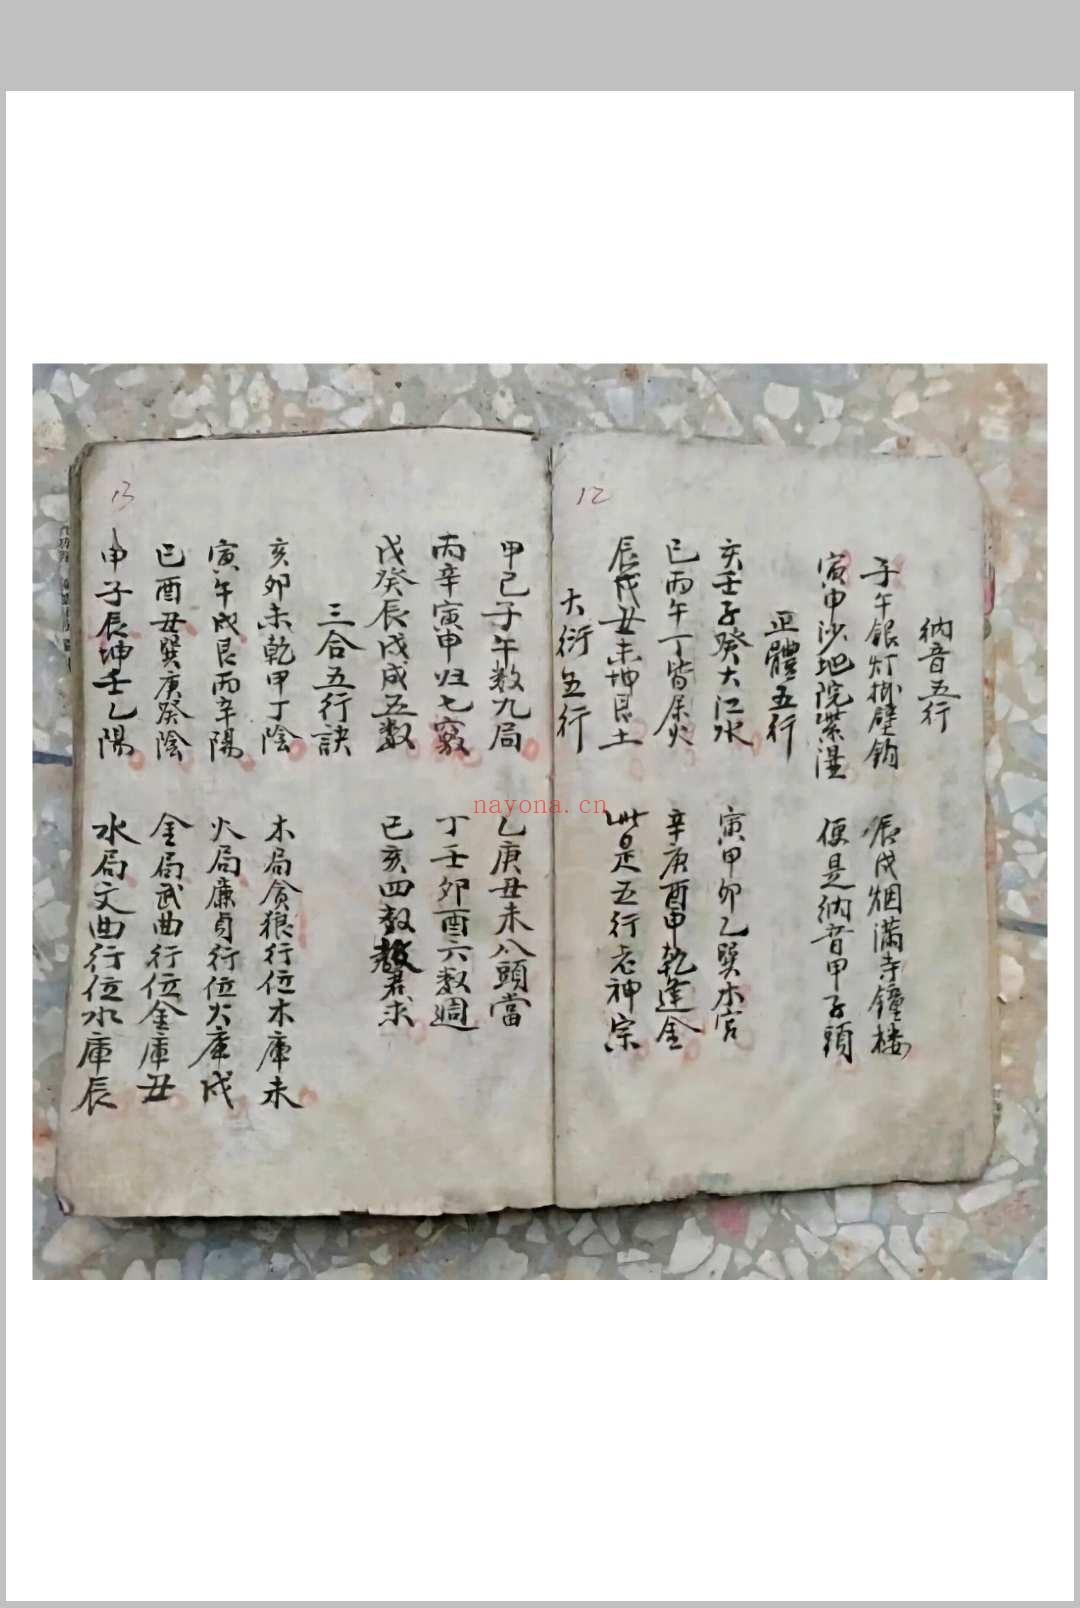 12
納音五行
子午銀灯掛壁鈎 辰戌烟滿寺鐘楼
寅申沙地院紫湿 便是納音甲子頭
正體五行
亥壬子癸大江水 寅甲卯乙巽木宫
巳丙午丁皆属火 辛庚酉申乾逢金
辰戌丑未坤艮土 此是五行老神宗
大衍五行
13
甲己子午数九局 乙庚丑未八頭當
丙辛寅申归七窮 丁壬卯酉六数週
戊癸辰戌成五数 巳亥四数求
三合五行訣
亥卯未乾甲丁陰 木局贪狼行位木庫未
寅午戌艮丙辛陽 火局廉貞行位火庫戌
巳酉丑巽庚癸陰 金局武曲行位金庫丑
申子辰坤壬乙陽 水局文曲行位水庫辰
nayona.cn